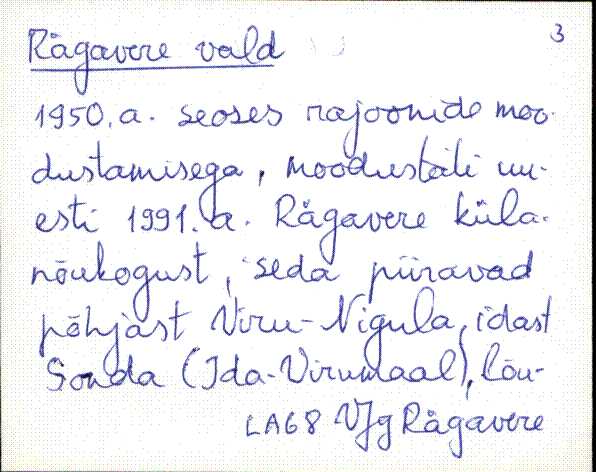 Rägavere vald 3
1950. a. seoses rajoonide moo-
dustamisega, moodustati uu-
esti 1991. a. Rägavere küla-
nõukogust, seda piiravad
põhjast Viru-Nigula, idast
Sonda (Ida-Virumaal), lõu-
LA68 VJg Rägavere